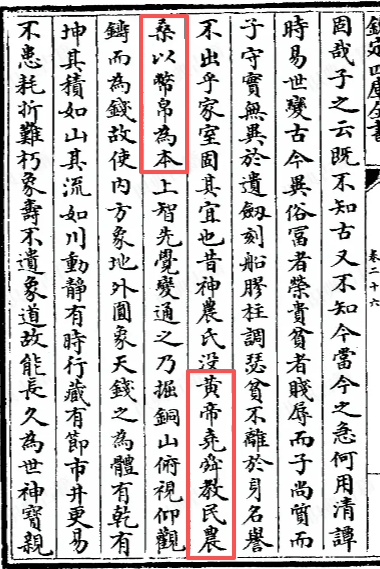 欽定四庫全書
卷二十六
固哉子之云既不知古又不知今當今之急何用清譚
時易世變古今異俗冨者榮貴貧者賤辱而子尚質而
子守實無異於遺劔刻船膠柱調瑟貧不離於身名譽
不出乎家室固其宜也昔神農氏没黄帝堯舜教民農
桑以幣帛為本上智先覺變通之乃掘銅山俯視仰觀
鑄而為錢故使内方象地外圓象天錢之為體有乾有
坤其積如山其流如川動静有時行藏有節市井更易
不患耗折難朽象壽不遺象道故能長久為世神寳親